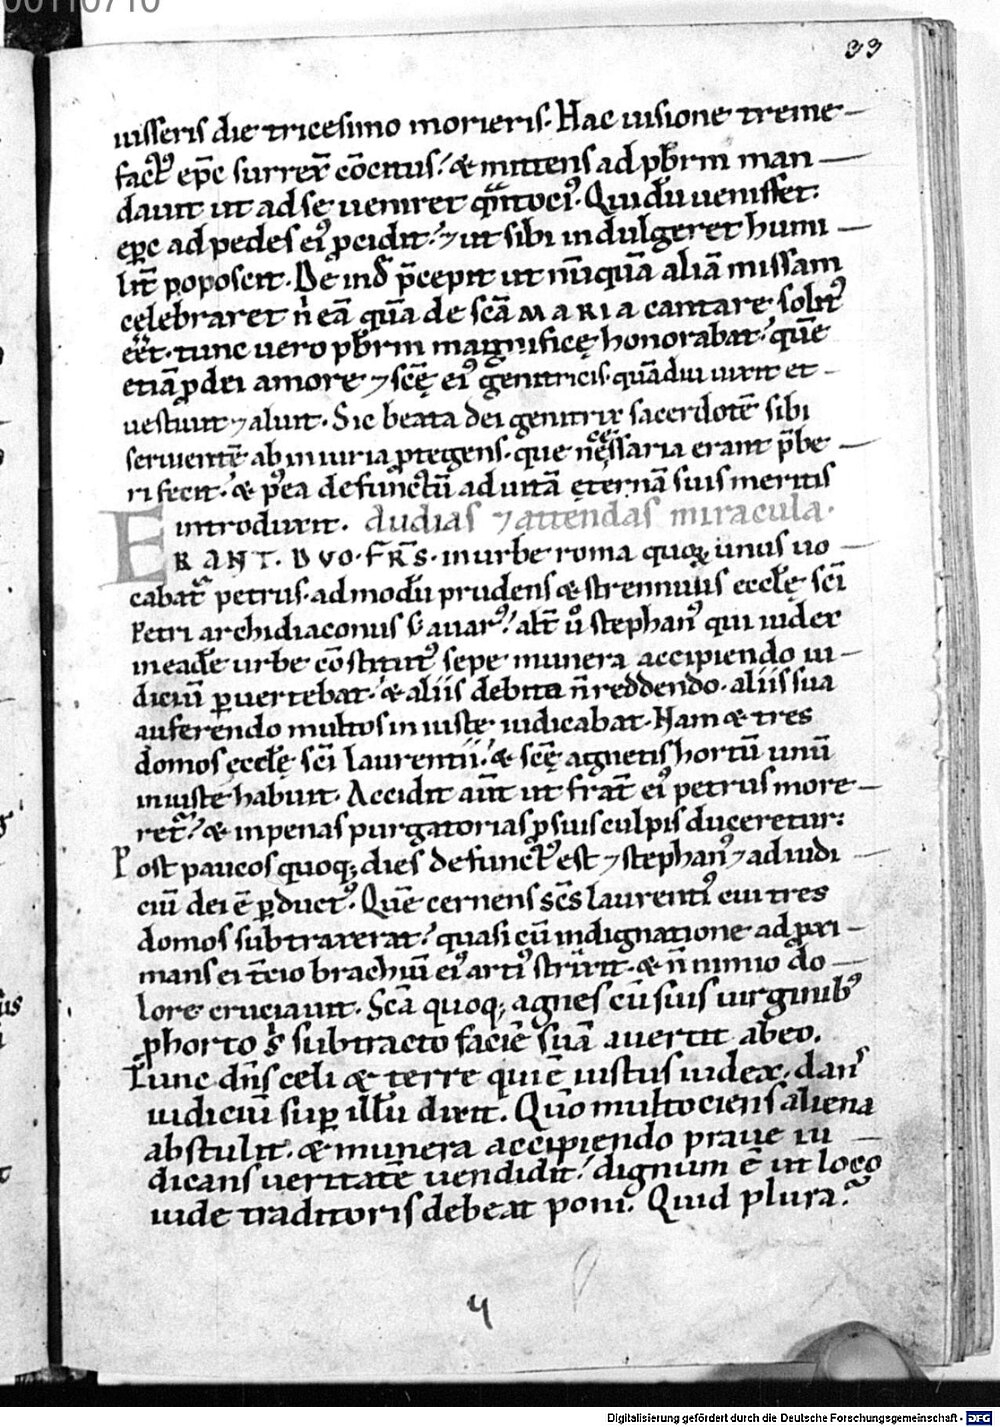 00110710
33
uisseris die tricesimo morieris. Hac uisione treme
fact᷒ ep̄c surrex̄ cōcitus. & mittens ad p̄brm man
dauit ut ad sę ueniret q̄ntoci᷒. Qui dū uenisset.
ep̄c ad pedes ei᷒ ꝓcidit. ⁊ ut sibi indulgeret humi
lit̄ poposcit. Deind̄ p̄cepit ut nūquā aliā missam
cęlebraret n̄ eā quā de scā MARIA cantare solit᷒
eēt. tunc uero p̄brm magnificę honorabat. quē
etiā ꝓ dei amore ⁊ scę̄ ei᷒ genitricis. quādiu uixit et
uestiuit ⁊ aluit. Sic beata dei genitrix sacerdotē sibi
seruientē ab iniuria ꝓtegens. que nēcessaria erant p̄be
ri fecit. & p᷒ea defunctū ad uitā ęternā suis meritis
introduxit. Audias ⁊ attendas miracula.
ERANT. DVO. FR̄S. in urbe roma quoꝝ unus uo
cabat᷑ petrus. admodū prudens & strennuus eccłę sc̄i
Petri archidiaconus s; auar᷒. alt̄ ů stephan᷒ qui iudex
in eadē urbe cōstitut᷒ sepe munera accipiendo iu
diciū ꝑuertebat. & aliis debita n̄ reddendo. aliis sua
auferendo multos iniustę iudicabat. Nam & tres
domos ęccłę sc̄i laurentii. & scę̄ agnetis hortū unū
iniuste habuit. Accidit aūt ut frat̄ ei᷒ petrus more
ret᷑. & in penas purgatorias ꝓ suis culpis duceretur.
Post paucos quoq; dies defunct᷒ est ⁊ stephan᷒ ⁊ ad iudi
ciū dei ē ꝑduct᷒. Quē cernens sc̄s laurenti᷒ cui tres
domos subtraxerat. quasi cū indignatione ad ꝓxi
mans ei t̄cio brachiū ei᷒ arti᷒ strīxit. & n̄ nimio do
lore cruciauit. Scā quoq; agnes cū suis uirginib᷒
ꝓ horto s᷑ subtracto faciē suā auertit ab eo.
Tunc dn̄s celi & terre qui ē iustus iudex. dans
iudiciū suꝑ illū dixit. Quō multociens aliena
abstulit. & munera accipiendo praue iu
dicans ueritatē uendidit. dignum ē ut loco
iude traditoris debeat poni. Quid plura.
4
Digitalisierung gefördert durch die Deutsche Forschungsgemeinschaft - DFG